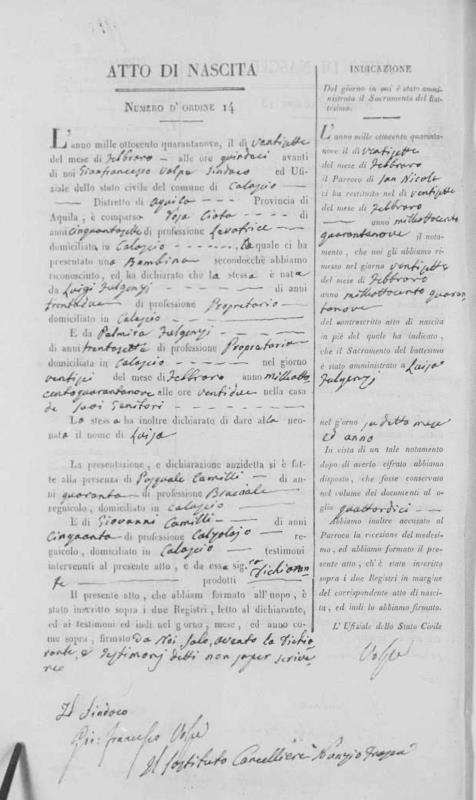 ATTO DI NASCITA
NUMERO D'ORDINE 14
L'anno mille ottocento quarantanove, il dì ventisette
del mese di Febbraro alle ore quindeci avanti
di noi Gianfrancesco Volpe Sindaco ed Ufi-
ziale dello stato civile del comune di Calascio
Distretto di Aquila Provincia di
Aquila, è comparsa di
anni cinquantasette di professione Levatrice
domiciliata in Calascio la quale ci ha
presentato una Bambina secondocchè abbiamo
riconosciuto, ed ha dichiarato che la stessa è nata
da Luigi Fulgenzj di anni
trentadue di professione Proprietario
domiciliato in Calascio
E da Palmira Fulgenzj
di anni trentasette di professione Proprietaria
domiciliata in Calascio nel giorno
ventisei del mese di Febbraro anno milleotto
centoquarantanove alle ore ventidue nella casa
de suoi Genitori
La stessa ha inoltre dichiarato di dare alla neo-
nata il nome di Luisa
La presentazione, e dichiarazione anzidetta si è fat-
te alla presenza di Pasquale Camilli di an-
ni quaranta di professione Bracciale
regnicolo, domiciliato in Calascio
E di Giovanni Camilli di anni
cinquanta di professione Calzolajo re-
gnicolo, domiciliato in Calascio testimoni
intervenuti al presente atto, e da essa sig.ra Dichiaran-
te prodotti
Il presente atto, che abbiam formato all'uopo, è
stato inscritto sopra i due Registri, letto al dichiarante,
ed ai testimoni ed indi nel giorno, mese, ed anno co-
me sopra, firmato da Noi solo, avendo la Dichia
rante, e Testimonj detti non saper scrive
re
Il Sindaco
Gio: Francesco Volpe
Il Sostituto Cancelliere
INDICAZIONE
Del giorno in cui è stato ammi-
nistrato il Sacramento del Bat-
tesimo.
L'anno mille ottocento quaranta-
nove il dì ventisette
del mese di Febbraro
il Parroco di San Nicola
ci ha restituito nel dì ventisette
del mese di Febbraro
anno milleottocento
quarantanove il nota-
mento, che noi gli abbiamo ri-
messo nel giorno ventisette
del mese di Febbraro
anno milleottocento quaran
tanove
del controscritto atto di nascita
in piè del quale ha indicato,
che il Sacramento del battesimo
è stato amministrato a Luisa
Fulgenzj
nel giorno sudetto mese
ed anno
In vista di un tale notamento
dopo di averlo cifrato abbiamo
disposto, che fosse conservato
nel volume dei documenti al fo-
glio quattordici
Abbiamo inoltre accusato al
Parroco la ricezione del medesi-
mo, ed abbiamo formato il pre-
sente atto, ch'è stato inscritto
sopra i due Registri in margine
del corrispondente atto di nasci-
ta, ed indi lo abbiamo firmato.
L'Ufiziale dello Stato Civile
Volpe